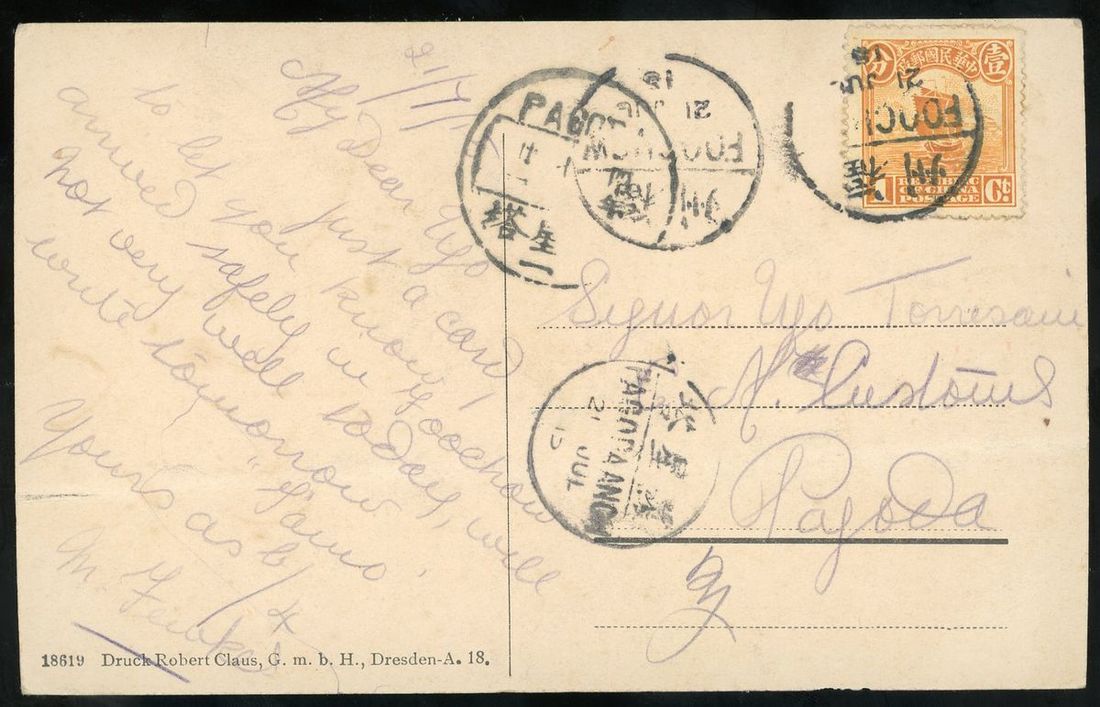 21/7/
My Dear Ugo
Just a card
to let you know
arrived safely in Foochow
not very well today, will
write tomorrow
Yours as
M.
18619 Druck Robert Claus, G. m. b. H., Dresden-A. 18.
PAGODA
塔星
FOOCHOW
21 JUL 15
福州
中華民國郵政
壹分
FOOCH
21 JUL 15
福州
1 Ct.
REPUBLIC
OF CHINA
POSTAGE
Signor Ugo Torresani
Customs
Pagoda
PAGODA ANCH
21 JUL 15
星